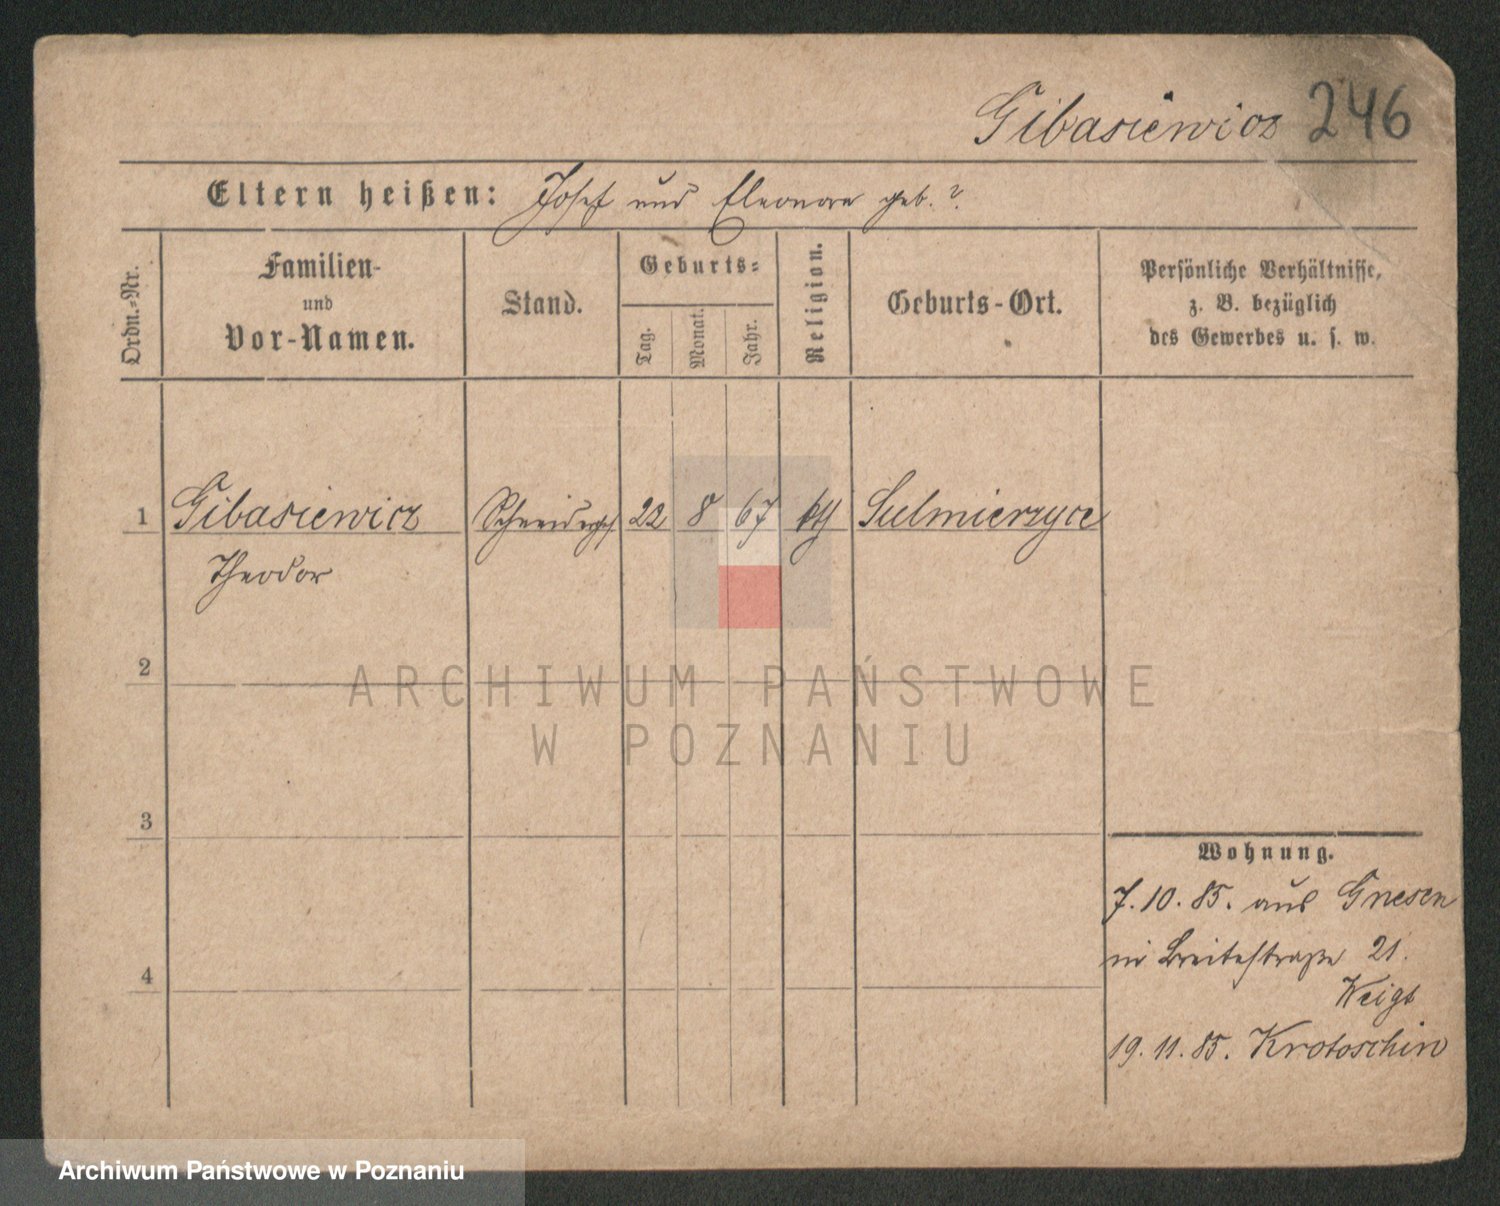 Gibasiewicz 246
Eltern heißen: Josef und Eleonore geb. ?
Ordn.-Nr.
Familien-
und
Vor-Namen.
Stand.
Geburts-
Tag.
Monat.
Jahr.
Religion.
Geburts-Ort.
Persönliche Verhältnisse,
z. B. bezüglich
des Gewerbes u. s. w.
1 Gibasiewicz Schneiderges. 22 8 67 kth Sulmierzyce
Theodor
2
3
4
Wohnung.
7. 10. 85. aus Gnesen
in Breitestraße 21.
Weigt
19. 11. 85. Krotoschin
ARCHIWUM PAŃSTWOWE
W POZNANIU
Archiwum Państwowe w Poznaniu